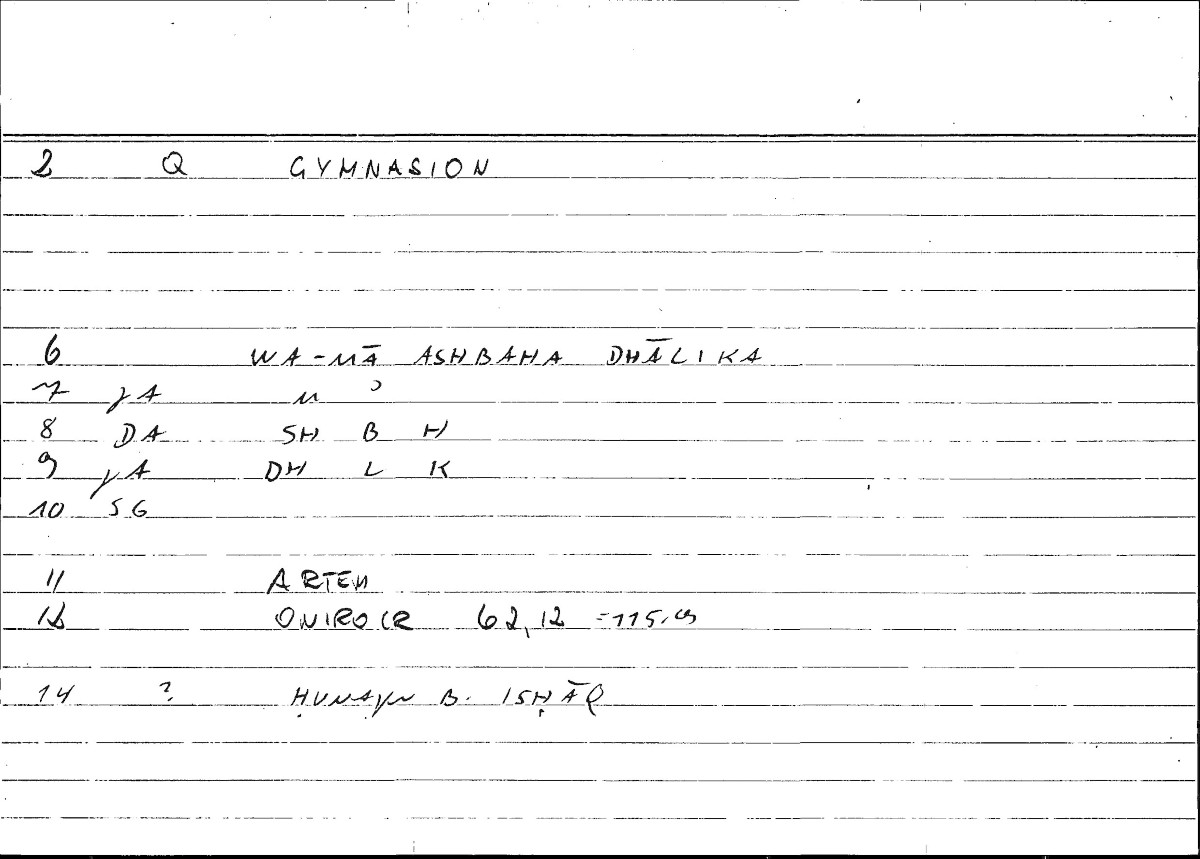 2 Q GYMNASION
6 WA-MĀ ASHBAHA DHĀLIKA
7 yA M ʾ
8 DA SH B H
9 yA DH L K
10 SG
11 ARTEM
12 ONIROCR 62,12 = 115.9
14 ? ḤUNAyN B. ISḤĀQ